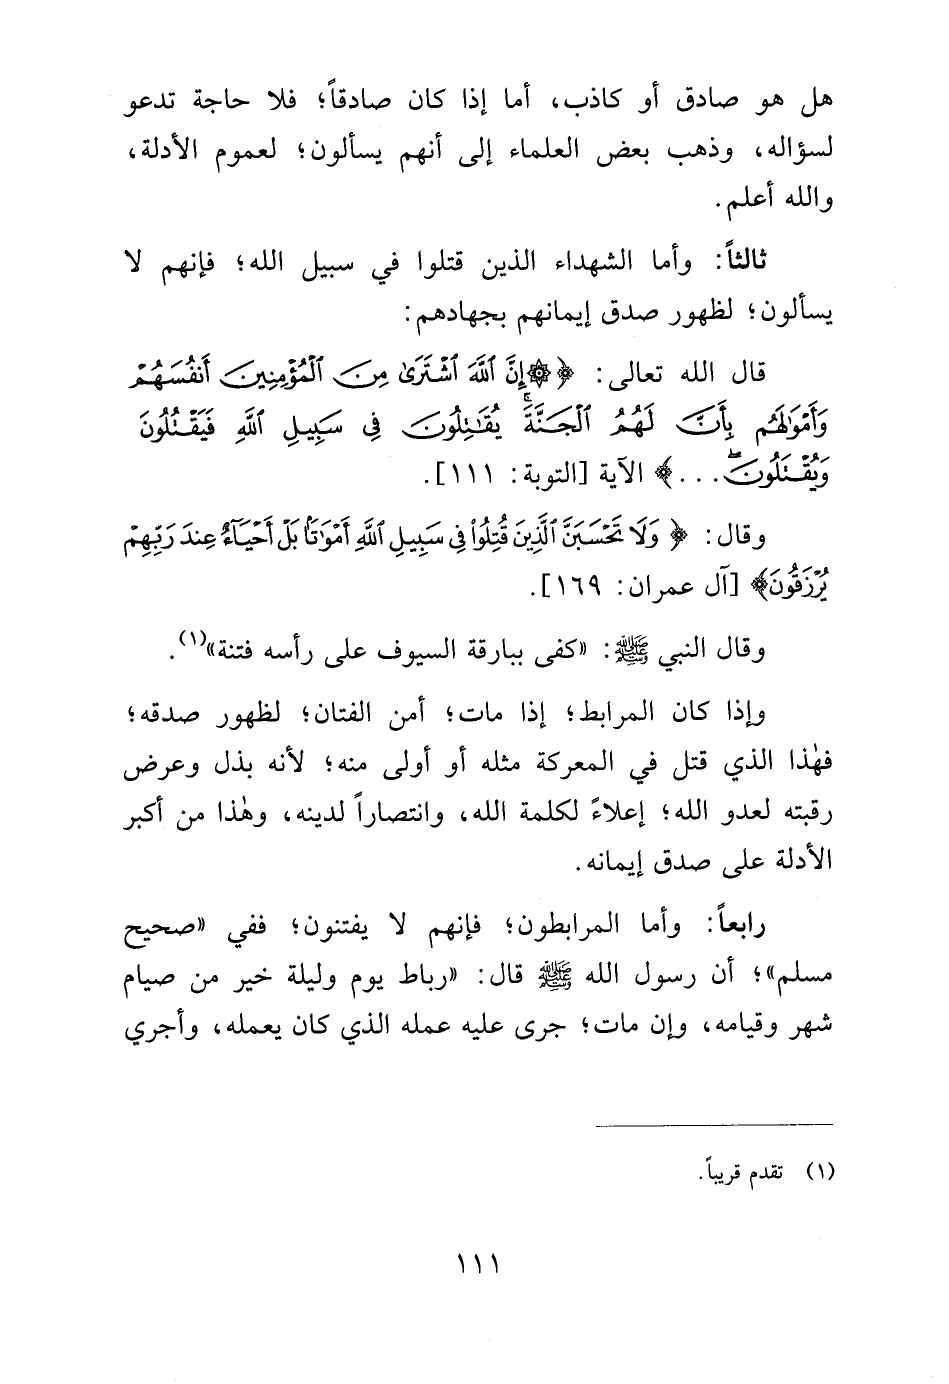 هل هو صادق أو كاذب، أما إذا كان صادقاً؛ فلا حاجة تدعو
لسؤاله، وذهب بعض العلماء إلى أنهم يسألون؛ لعموم الأدلة،
والله أعلم.
ثالثاً: وأما الشهداء الذين قتلوا في سبيل الله؛ فإنهم لا
يسألون؛ لظهور صدق إيمانهم بجهادهم:
قال الله تعالى: ﴿۞إِنَّ ٱللَّهَ ٱشْتَرَىٰ مِنَ ٱلْمُؤْمِنِينَ أَنفُسَهُمْ
وَأَمْوَٰلَهُم بِأَنَّ لَهُمُ ٱلْجَنَّةَۚ يُقَٰتِلُونَ فِى سَبِيلِ ٱللَّهِ فَيَقْتُلُونَ
وَيُقْتَلُونَۖ...﴾ الآية [التوبة: ١١١].
وقال: ﴿وَلَا تَحْسَبَنَّ ٱلَّذِينَ قُتِلُوا۟ فِى سَبِيلِ ٱللَّهِ أَمْوَٰتًۢا بَلْ أَحْيَآءٌ عِندَ رَبِّهِمْ
يُرْزَقُونَ﴾ [آل عمران: ١٦٩].
وقال النبي ﷺ: «كفى ببارقة السيوف على رأسه فتنة»(١).
وإذا كان المرابط؛ إذا مات؛ أمن الفتان؛ لظهور صدقه؛
فهٰذا الذي قتل في المعركة مثله أو أولى منه؛ لأنه بذل وعرض
رقبته لعدو الله؛ إعلاءً لكلمة الله، وانتصاراً لدينه، وهٰذا من أكبر
الأدلة على صدق إيمانه.
رابعاً: وأما المرابطون؛ فإنهم لا يفتنون؛ ففي «صحيح
مسلم»؛ أن رسول الله ﷺ قال: «رباط يوم وليلة خير من صيام
شهر وقيامه، وإن مات؛ جرى عليه عمله الذي كان يعمله، وأجري
(١) تقدم قريباً.
١١١